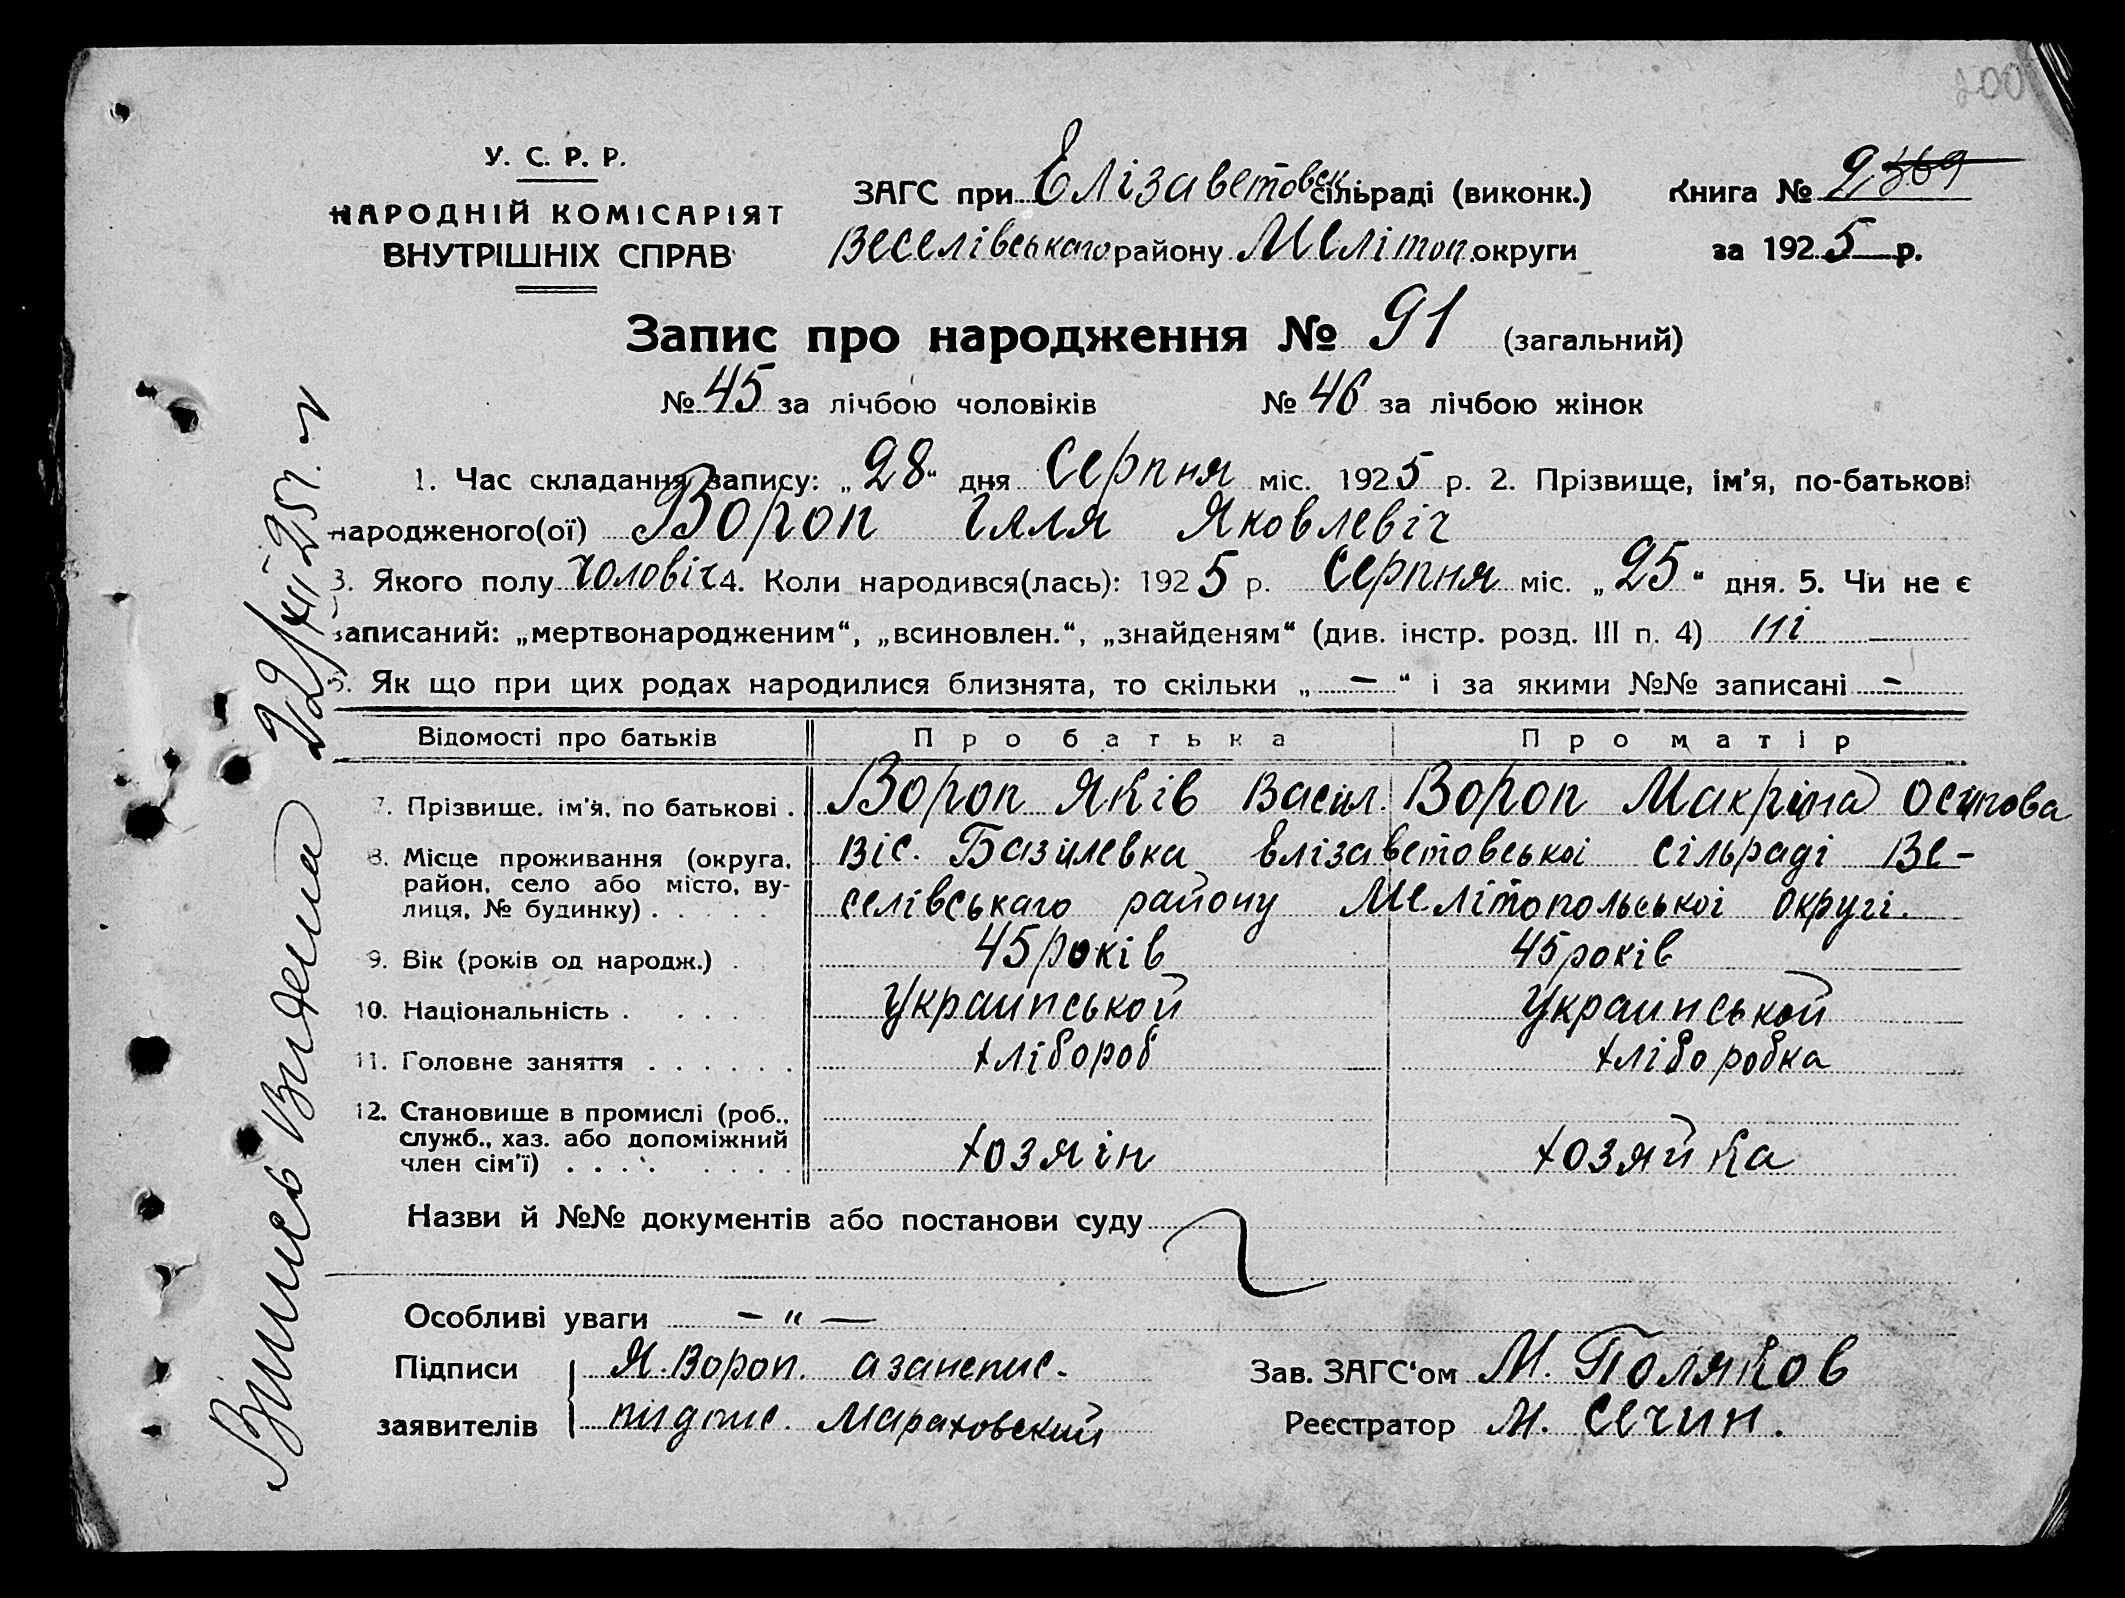 200
У. С. Р. Р.
НАРОДНІЙ КОМІСАРІЯТ
ВНУТРІШНІХ СПРАВ
ЗАГС при Елізаветовск. сільраді (виконк.)
Веселівськаго району Мелітоп. округи
Книга № 2 369
за 1925 р.
Запис про народження № 91 (загальний)
№ 45 за лічбою чоловіків № 46 за лічбою жінок
1. Час складання запису: „28“ дня Серпня міс. 1925 р. 2. Прізвище, ім'я, по-батькові
народженого(ої) Вороп Ілля Яковлевіч
3. Якого полу Чоловіч 4. Коли народився(лась): 1925 р. Серпня міс. „25“ дня. 5. Чи не є
записаний: „мертвонародженим“, „всиновлен.“, „знайденям“ (див. інстр. розд. III п. 4) ні
6. Як що при цих родах народилися близнята, то скільки „ — “ і за якими №№ записані —
Відомості про батьків Про батька Про матір
7. Прізвище, ім'я, по батькові . Вороп Яків Васил. Вороп Макріна Осипова
8. Місце проживання (округа, район, село або місто, вулиця, № будинку) . . . . .
віс. Базилевка Елізаветовської сільраді Ве-
селівськаго району Мелітопольської округі.
9. Вік (років од народж.) . 45 років 45 років
10. Національність . . . . . Украинськой Украинськой
11. Головне заняття . . . . . . хлібороб хліборобка
12. Становище в промислі (роб., служб., хаз. або допоміжний член сім'ї) . . . . . . . . хозяін хозяйка
Назви й №№ документів або постанови суду
Особливі уваги — „ —
Підписи Я. Вороп. а занепис.
заявителів пидпис. Мараховский
Зав. ЗАГС'ом М. Поляков
Реєстратор М. Сечин.
Випись видена 22/XII 25 г.